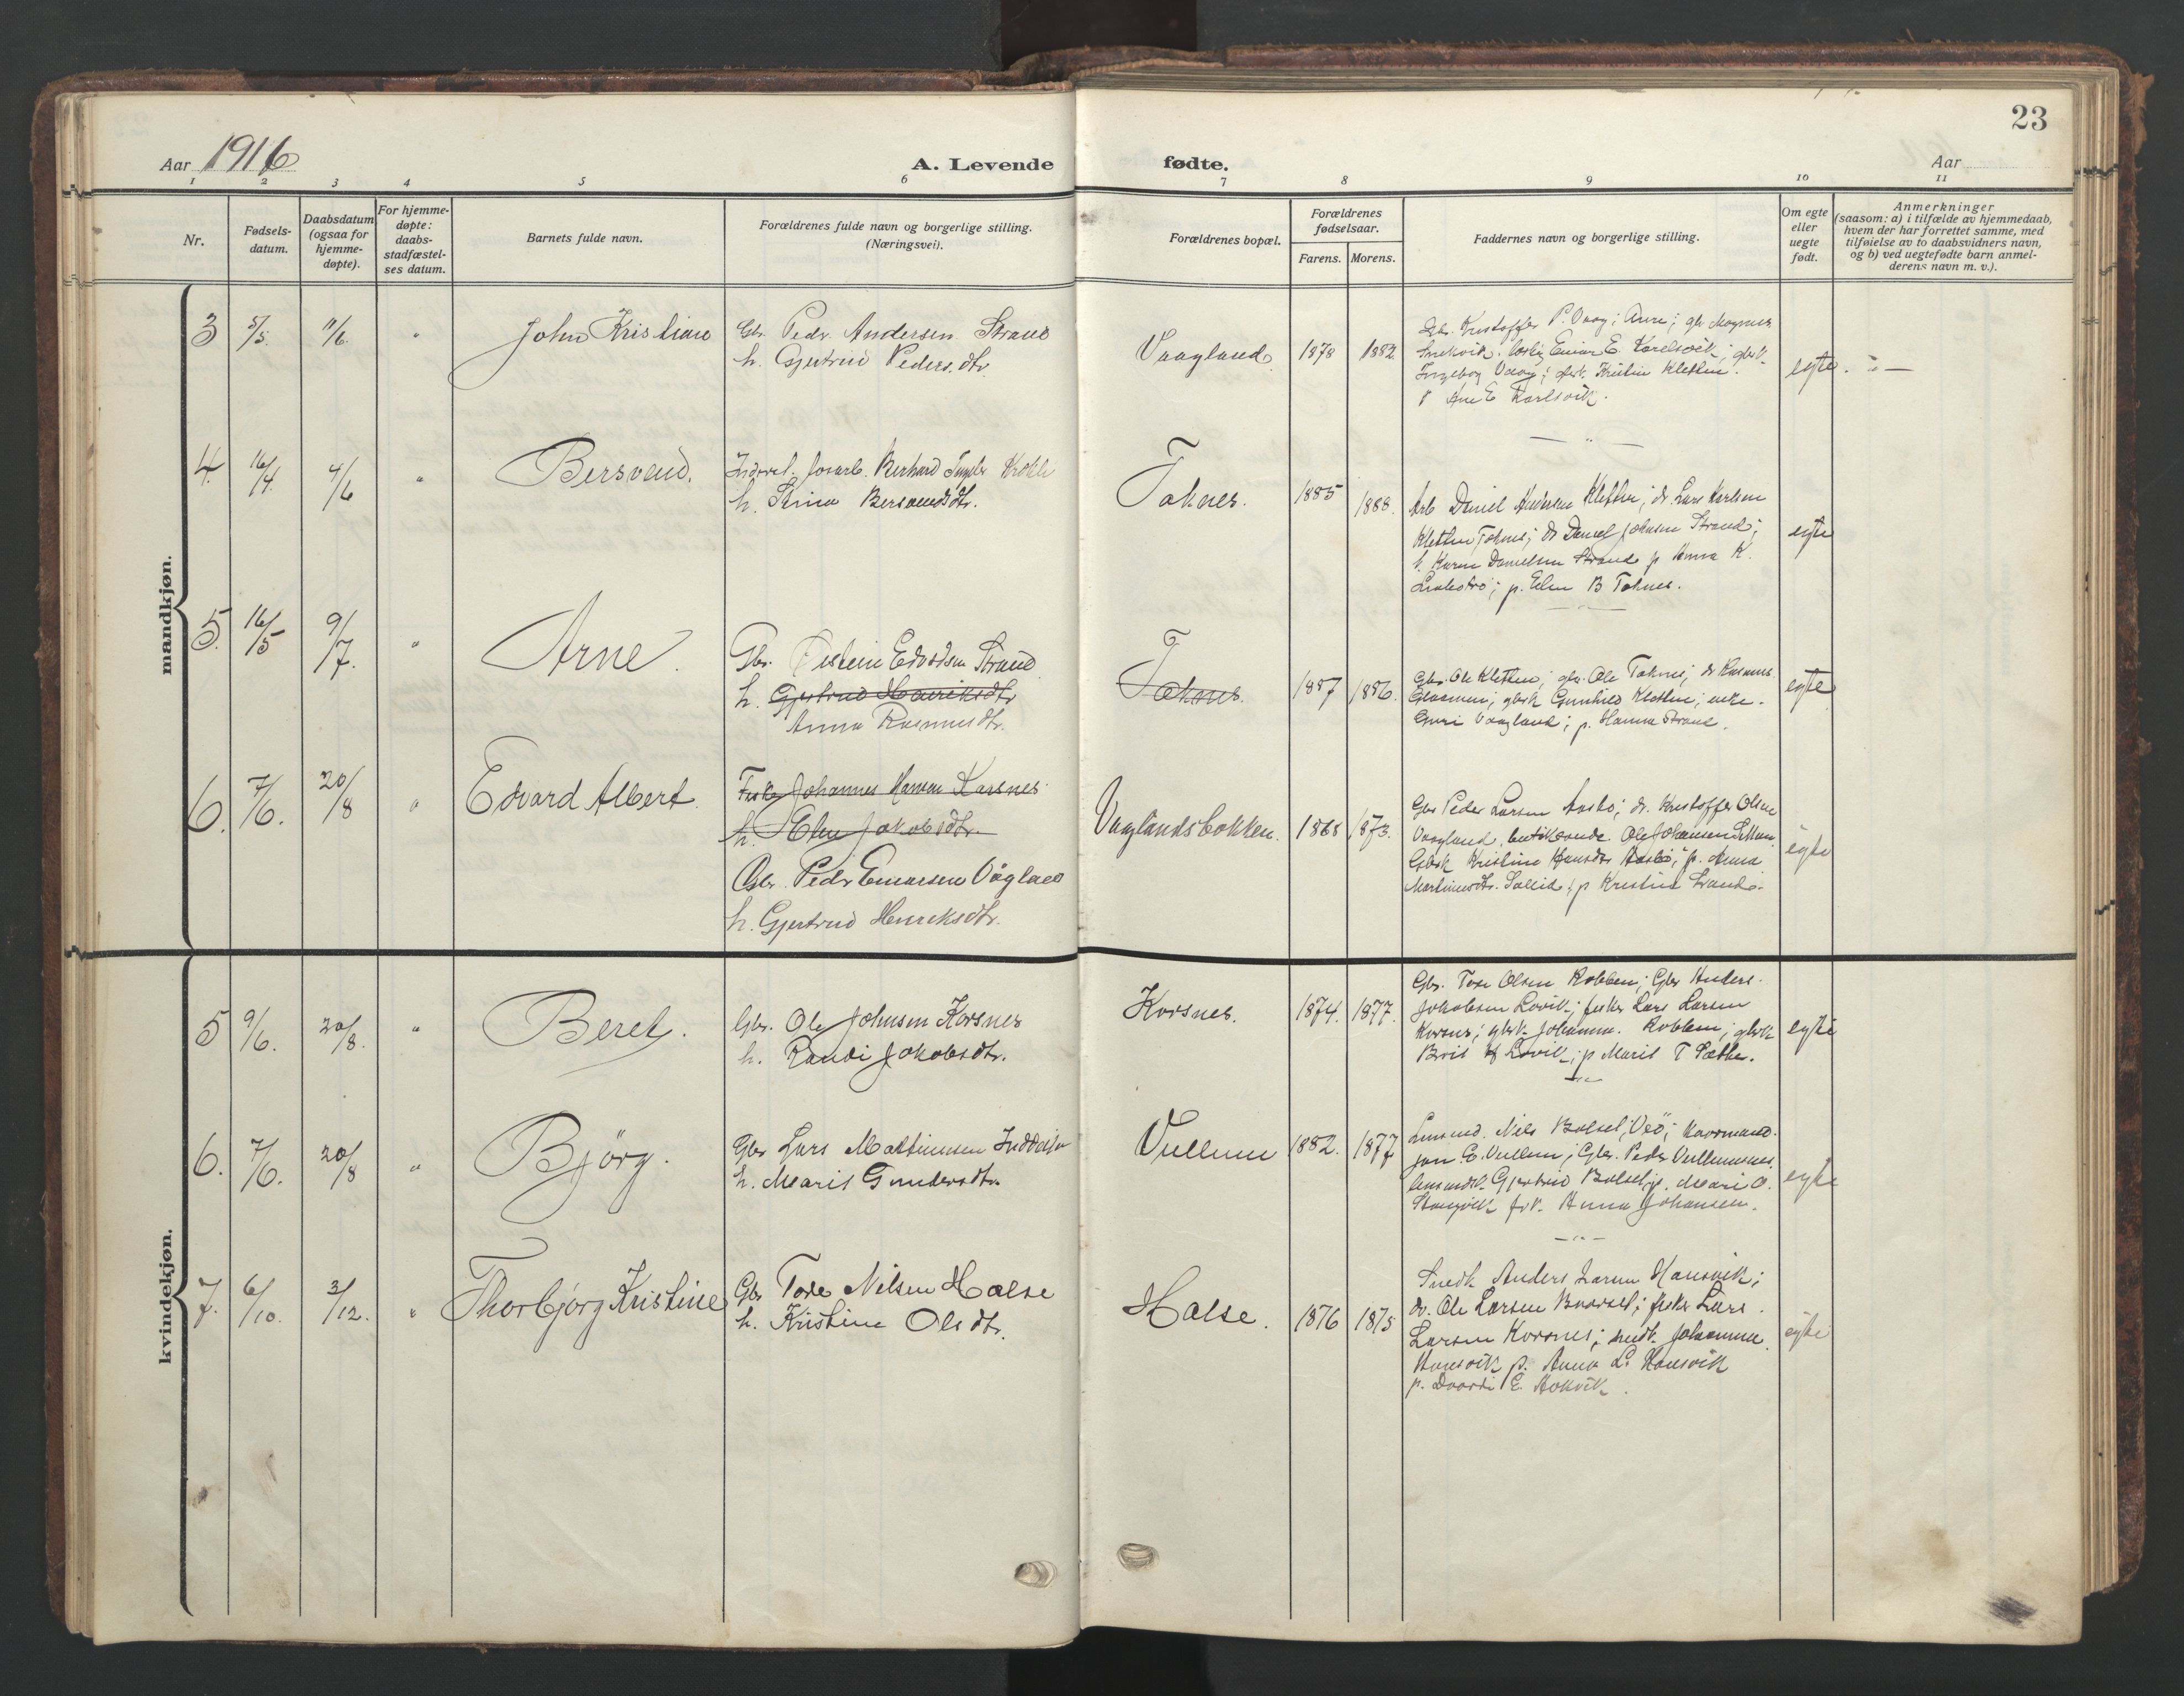 23
Aar 1916
A. Levende
fødte.
Aar
1 2 3 4 5 6 7 8 9 10 11
Nr.
Fødsels-
datum.
Daabsdatum
(ogsaa for
hjemme-
døpte).
For hjemme-
døpte:
daabs-
stadfæstel-
ses datum.
Barnets fulde navn.
Forældrenes fulde navn og borgerlige stilling.
(Næringsvei).
Forældrenes bopæl.
Forældrenes
fødselsaar.
Farens. Morens.
Faddernes navn og borgerlige stilling.
Om egte
eller
uegte
født.
Anmerkninger
(saasom: a) i tilfælde av hjemmedaab,
hvem der har forrettet samme, med
tilføielse av to daabsvidners navn,
og b) ved uegtefødte barn anmel-
derens navn m. v.).
mandkjøn.
3 5/5. 11/6. " John Kristian
Gbr. Peder Andersen Strand
h. Gjertrud Peders.dtr.
Vaagland. 1878 1882
Gbr. Kristoffer P. Vaag i Aure; gbr Magnus
Einar E. Karelsvik; gbrk.
Ingeborg Vaag; gbrk. Kristin Kletten.
E Karlsvik.
egte.
4. 16/4. 4/6 " Bersvend.
Berhard
h. Stina Bersvendsdtr.
Taknes. 1885 1888.
Arb Daniel Andersen Kletten; dr. Lars Karlsen
Kletten Taknes; dr Daniel Johnsen Strand;
h. Karen Danielsen Strand p Anna K.
p. Elen B Taknes.
egte
5. 16/5 9/7. " Arne.
Gbr. Øistein Edvardsen Strand
h. Gjertrud Henriksdtr
Anna Rasmusdtr.
Taknes. 1887 1886.
Gbr. Ole Kletten; gbr. Ole Taknes; dr Rasmus
gbrk Gunhild Kletten; enke.
Guri Vaagland; p. Hanna Strand.
egte
6. 7/6. 20/8 " Edvard Albert.
Fisker Johannes Hansen Korsnes
h. Elen Jakobsdtr.
Gbr. Peder Einarsen Vågland
h. Gjertrud Henriksdtr.
Vaaglandsbakken. 1868 1873.
Gbr Peder Larsen Aasbø; dr. Kristoffer Olsen
Vaagland. Ole Johansen
Gbrk Kristine Hansdtr Aasbø; p. Anna
Martinusdtr. p Kristine Strand.
egte
kvindekjøn.
5 9/6. 20/8. " Beret.
Gbr. Ole Johnsen Korsnes
h. Randi Jakobsdtr.
Korsnes. 1874. 1877.
Gbr. Tore Olsen Rabben; Gbr Anders
Jakobsen Lovik; fisker Lars Larsen
Korsnes; gbrk. Johanna. Rabben; gbrk
Brit Lovik; p Marit T Sæther.
egte
6. 7/6. 20/8 " Björg.
Gbr Lars Martinusen
h. Marit Gundersdtr.
Vullum 1882. 1877
Lensmd. Nils Bolset, Veö;
Jon E. Vullum; Gbr. Peder Vullumsnes.
Gjertrud Bolset; p. Mari O.
Stangvik frk. Anna Johansen.
egte
7. 6/10. 3/12. " Thorbjörg Kristine
Gbr Tore Nilsen Halse
h. Kristine Olsdtr.
Halse. 1876 1875
Snedk Anders Larsen Hansvik;
dr. Ole Larsen fisker Lars
Larsen Korsnes; snedk. Johanna
Hansvik p. Anna L. Hansvik
p. E.
egte